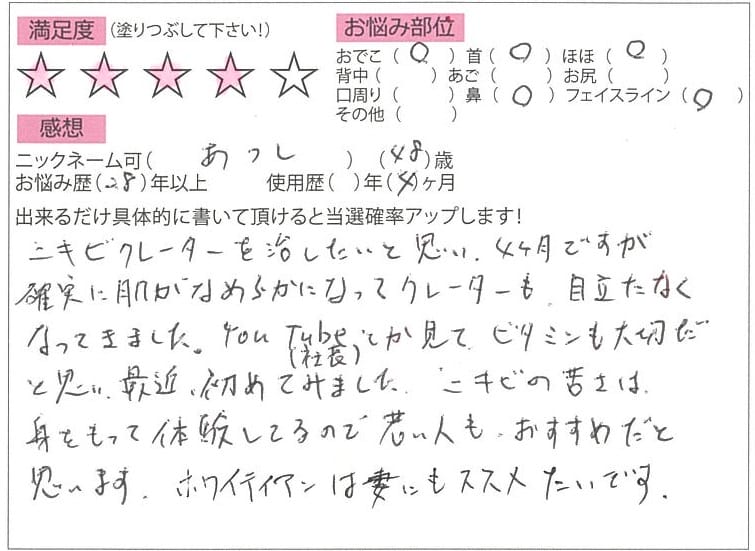 満足度 (塗りつぶして下さい!)
お悩み部位
おでこ(○) 首(○) ほほ(○)
背中( ) あご( ) お尻( )
口周り( ) 鼻(○) フェイスライン(○)
その他( )
感想
ニックネーム可( あつし ) (48)歳
お悩み歴(28)年以上 使用歴( )年(4)ヶ月
出来るだけ具体的に書いて頂けると当選確率アップします!
ニキビクレーターを治したいと思い、4ヶ月ですが
確実に肌がなめらかになってクレーターも、目立たなく
なってきました。You Tubeとか見て、ビタミンも大切だ
(社長)
と思い、最近、初めてみました。ニキビの苦さは、
身をもって体験してるので若い人も、おすすめだと
思います。ホワイティアンは妻にもススメたいです。